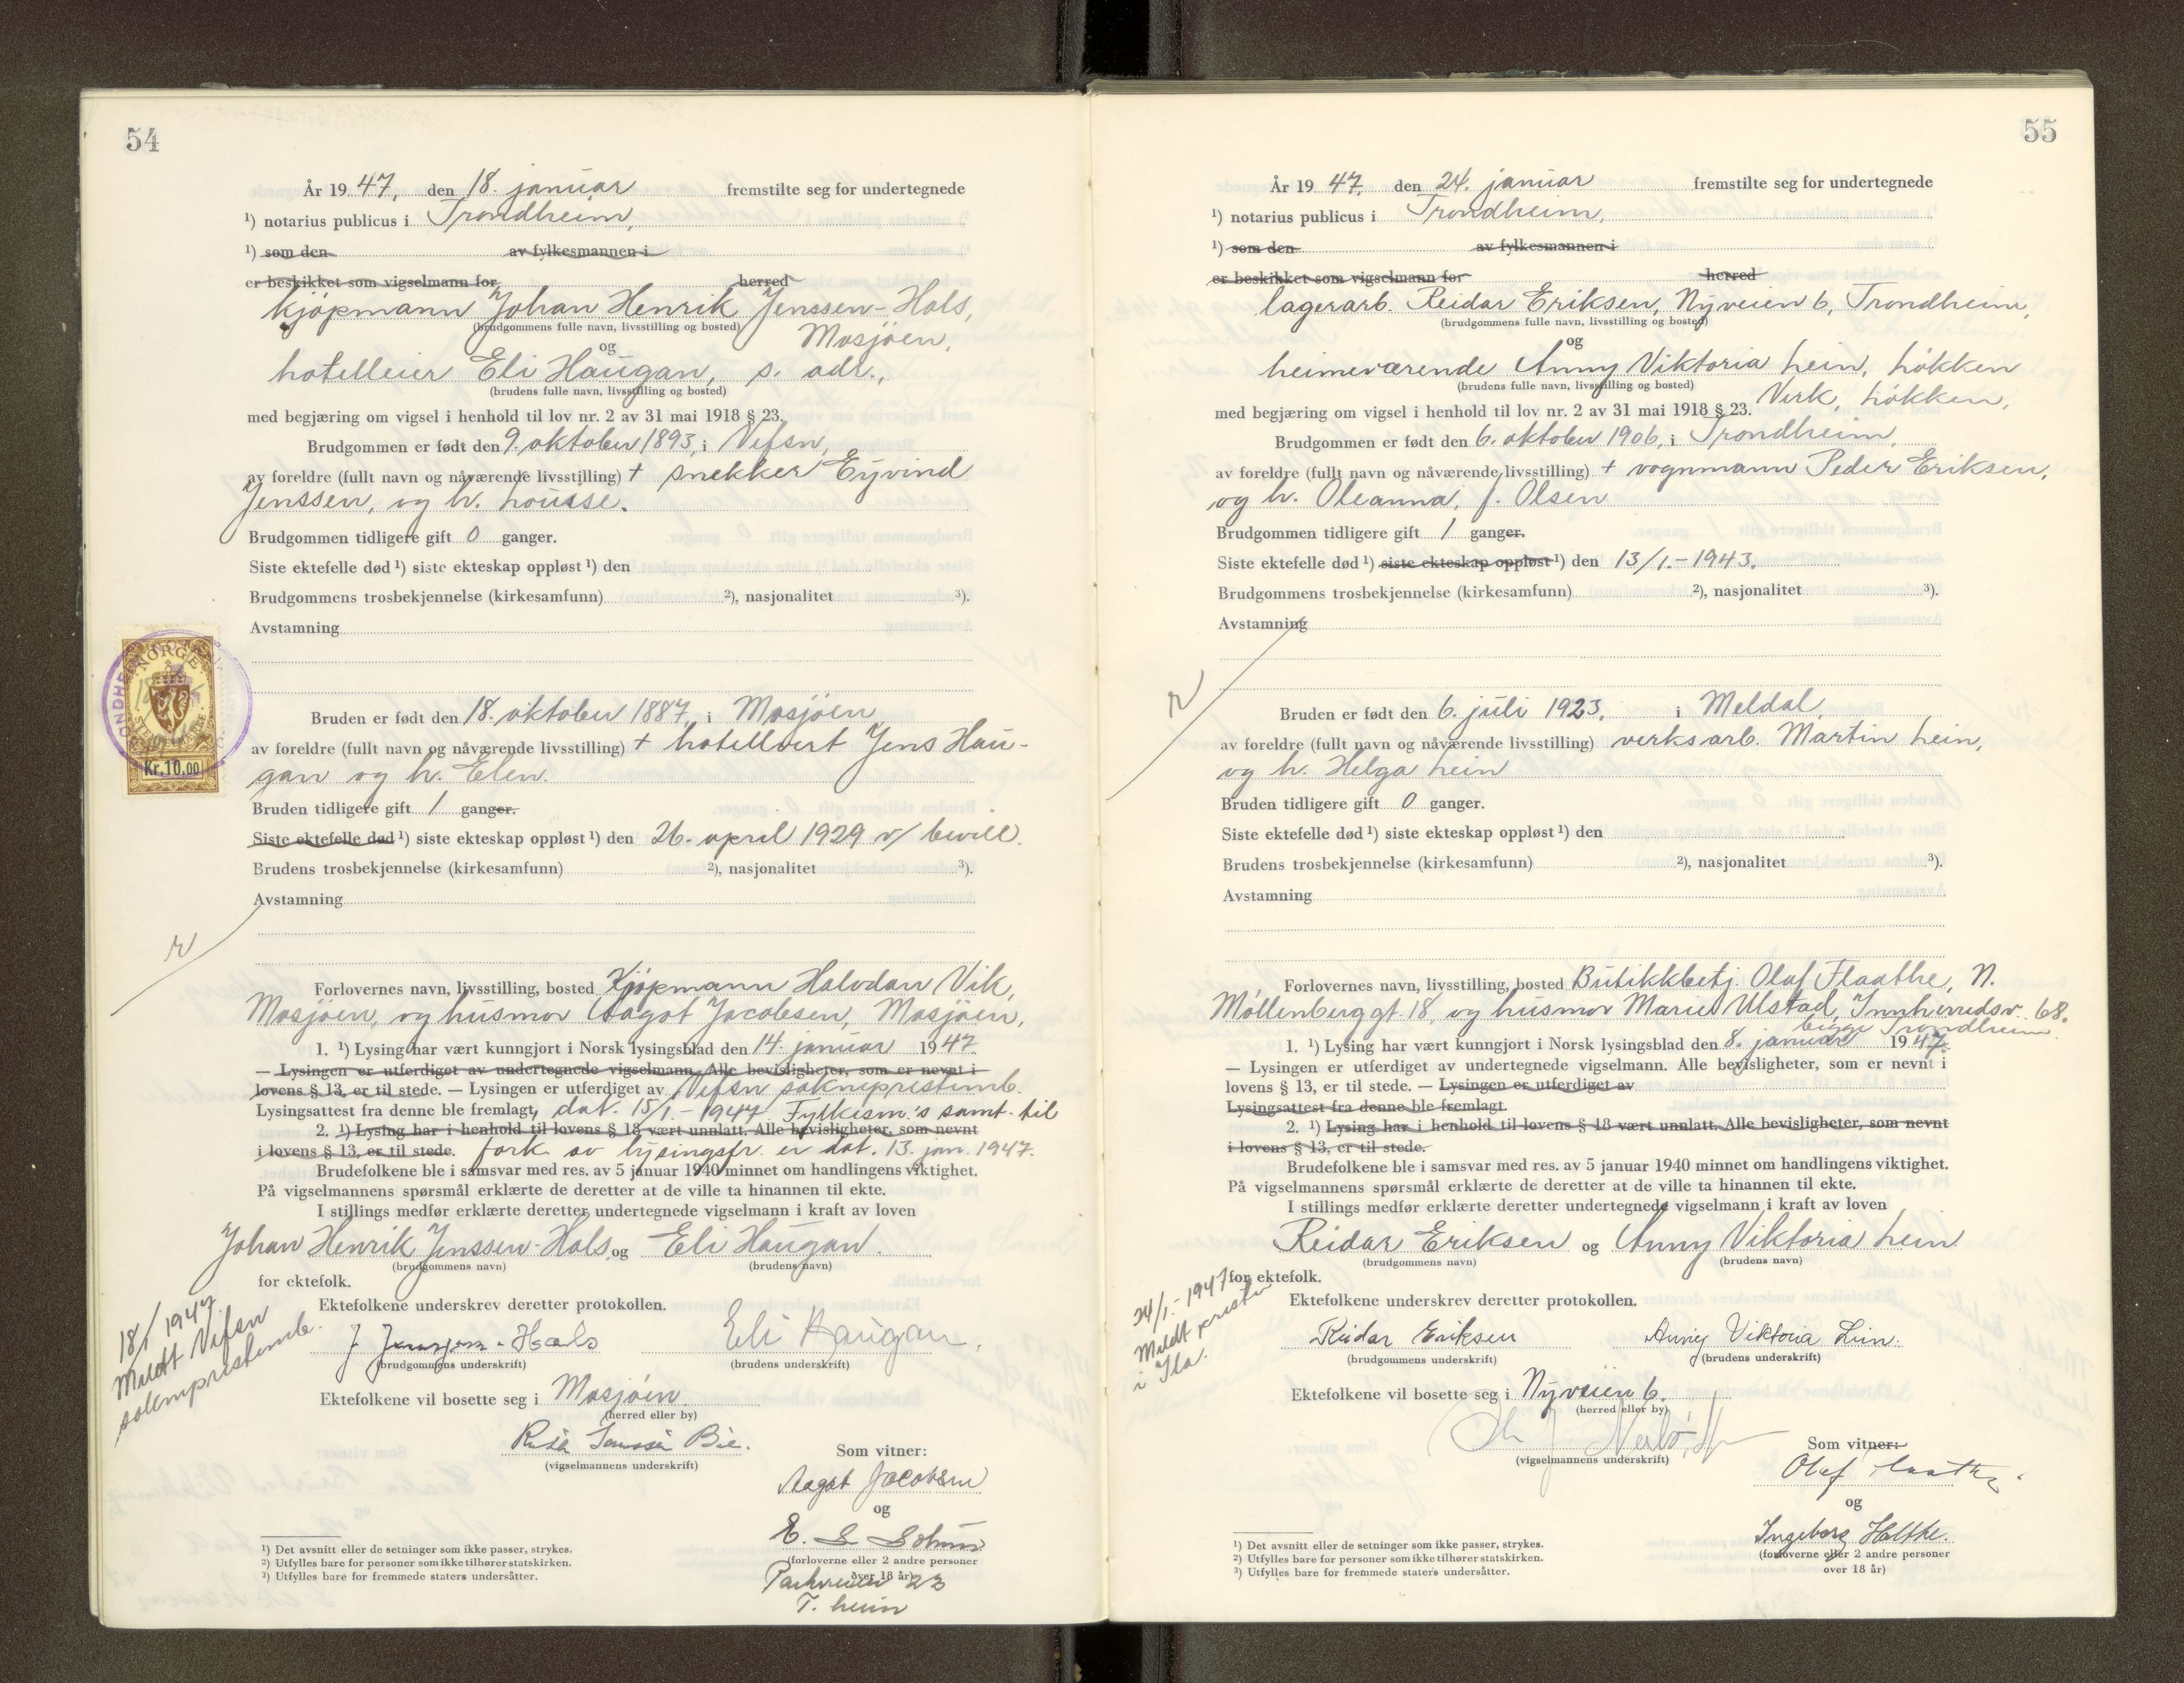 54
År 1947, den 18. januar fremstilte seg for undertegnede
¹) notarius publicus i Trondheim,
¹) som den av fylkesmannen i
er beskikket som vigselmann for herred
kjøpmann Johan Henrik Jenssen-Hals,
(brudgommens fulle navn, livsstilling og bosted)
Mosjøen,
og
hotelleier Eli Haugan, s. adr.,
(brudens fulle navn, livsstilling og bosted)
med begjæring om vigsel i henhold til lov nr. 2 av 31 mai 1918 § 23.
Brudgommen er født den 9. oktober 1893, i Vefsn,
av foreldre (fullt navn og nåværende livsstilling) + snekker Eyvind
Jenssen, og h. Lousse.
Brudgommen tidligere gift 0 ganger.
Siste ektefelle død ¹) siste ekteskap oppløst ¹) den
Brudgommens trosbekjennelse (kirkesamfunn) ²), nasjonalitet ³).
Avstamning
NORGE
Kr.10.00
Bruden er født den 18. oktober 1887, i Mosjøen
av foreldre (fullt navn og nåværende livsstilling) + hotellvert Jens Hau-
gan og h. Elen.
Bruden tidligere gift 1 ganger.
Siste ektefelle død ¹) siste ekteskap oppløst ¹) den 26. april 1929 v/ bevill.
Brudens trosbekjennelse (kirkesamfunn) ²), nasjonalitet ³).
Avstamning
Forlovernes navn, livsstilling, bosted Kjøpmann Halvdan Vik,
Mosjøen, og husmor Aagot Jacobsen, Mosjøen,
1. ¹) Lysing har vært kunngjort i Norsk lysingsblad den 14. januar 1947.
— Lysingen er utferdiget av undertegnede vigselmann. Alle bevisligheter, som er nevnt i
lovens § 13, er til stede. — Lysingen er utferdiget av Vefsn sokneprestemb.
Lysingsattest fra denne ble fremlagt, dat. 15/1.-1947. Fylkesm.'s samt. til
2. ¹) Lysing har i henhold til lovens § 18 vært unnlatt. Alle bevisligheter, som nevnt
i lovens § 13, er til stede. fork. av lysingsfr. er dat. 13. jan. 1947.
Brudefolkene ble i samsvar med res. av 5 januar 1940 minnet om handlingens viktighet.
På vigselmannens spørsmål erklærte de deretter at de ville ta hinannen til ekte.
I stillings medfør erklærte deretter undertegnede vigselmann i kraft av loven
Johan Henrik Jenssen-Hals og Eli Haugan.
(brudgommens navn) (brudens navn)
for ektefolk.
18/1 1947.
Meldt Vefsn
sokneprestemb.
Ektefolkene underskrev deretter protokollen.
J Jenssen-Hals Eli Haugan.
(brudgommens underskrift) (brudens underskrift)
Ektefolkene vil bosette seg i Mosjøen.
(herred eller by)
(vigselmannens underskrift)
Som vitner:
Aagot Jacobsen
og
(forloverne eller 2 andre personer
over 18 år)
Parkveien 23
T. heim
¹) Det avsnitt eller de setninger som ikke passer, strykes.
²) Utfylles bare for personer som ikke tilhører statskirken.
³) Utfylles bare for fremmede staters undersåtter.
55
År 1947, den 24. januar fremstilte seg for undertegnede
¹) notarius publicus i Trondheim,
¹) som den av fylkesmannen i
er beskikket som vigselmann for herred
lagerarb. Reidar Eriksen, Nyveien 6, Trondheim,
(brudgommens fulle navn, livsstilling og bosted)
og
heimeværende Anny Viktoria Lein, Løkken
(brudens fulle navn, livsstilling og bosted)
Verk, Løkken,
med begjæring om vigsel i henhold til lov nr. 2 av 31 mai 1918 § 23.
Brudgommen er født den 6. oktober 1906, i Trondheim,
av foreldre (fullt navn og nåværende livsstilling) + vognmann Peder Eriksen,
og h. Oleanna, f. Olsen
Brudgommen tidligere gift 1 ganger.
Siste ektefelle død ¹) siste ekteskap oppløst ¹) den 13/1.-1943.
Brudgommens trosbekjennelse (kirkesamfunn) ²), nasjonalitet ³).
Avstamning
Bruden er født den 6. juli 1923, i Meldal,
av foreldre (fullt navn og nåværende livsstilling) verksarb. Martin Lein,
og h. Helga Lein
Bruden tidligere gift 0 ganger.
Siste ektefelle død ¹) siste ekteskap oppløst ¹) den
Brudens trosbekjennelse (kirkesamfunn) ²), nasjonalitet ³).
Avstamning
Forlovernes navn, livsstilling, bosted Butikkbetj. Olaf Flaathe, N.
Møllenberggt. 18, og husmor Marie Ulstad, Innherredsv. 68.
begge Trondheim
1. ¹) Lysing har vært kunngjort i Norsk lysingsblad den 8. januar 1947.
— Lysingen er utferdiget av undertegnede vigselmann. Alle bevisligheter, som er nevnt i
lovens § 13, er til stede. — Lysingen er utferdiget av
Lysingsattest fra denne ble fremlagt.
2. ¹) Lysing har i henhold til lovens § 18 vært unnlatt. Alle bevisligheter, som nevnt
i lovens § 13, er til stede.
Brudefolkene ble i samsvar med res. av 5 januar 1940 minnet om handlingens viktighet.
På vigselmannens spørsmål erklærte de deretter at de ville ta hinannen til ekte.
I stillings medfør erklærte deretter undertegnede vigselmann i kraft av loven
Reidar Eriksen og Anny Viktoria Lein
(brudgommens navn) (brudens navn)
for ektefolk.
24/1.-1947
Meldt presten
i Ila.
Ektefolkene underskrev deretter protokollen.
Reidar Eriksen Anny Viktoria Lein.
(brudgommens underskrift) (brudens underskrift)
Ektefolkene vil bosette seg i Nyveien 6.
(herred eller by)
(vigselmannens underskrift)
Som vitner:
Olaf Flaathe
og
Ingeborg Holthe.
(forloverne eller 2 andre personer
over 18 år)
¹) Det avsnitt eller de setninger som ikke passer, strykes.
²) Utfylles bare for personer som ikke tilhører statskirken.
³) Utfylles bare for fremmede staters undersåtter.